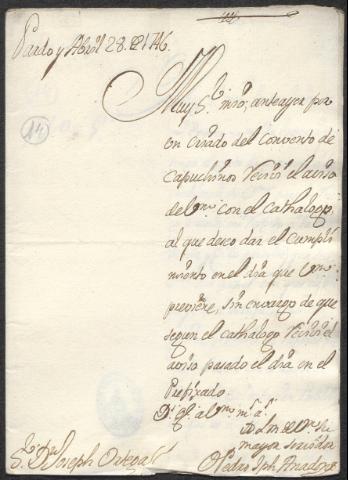 Pardo y Abril 28. de 1746.
14
Muy S.r mio; anteayer por
un criado del convento de
capuchinos reciví el aviso
de Vm. con el cathalogo,
al que devo dar el cumpli
miento en el dia que Vm.
previene, sin envargo de que
segun el cathalogo reciví el
aviso pasado el dia en el
Prefixado
D.s g.e a Vm. m.s a.s
B L M de Vm. su
mayor servidor
S.r D.n Joseph Ortega